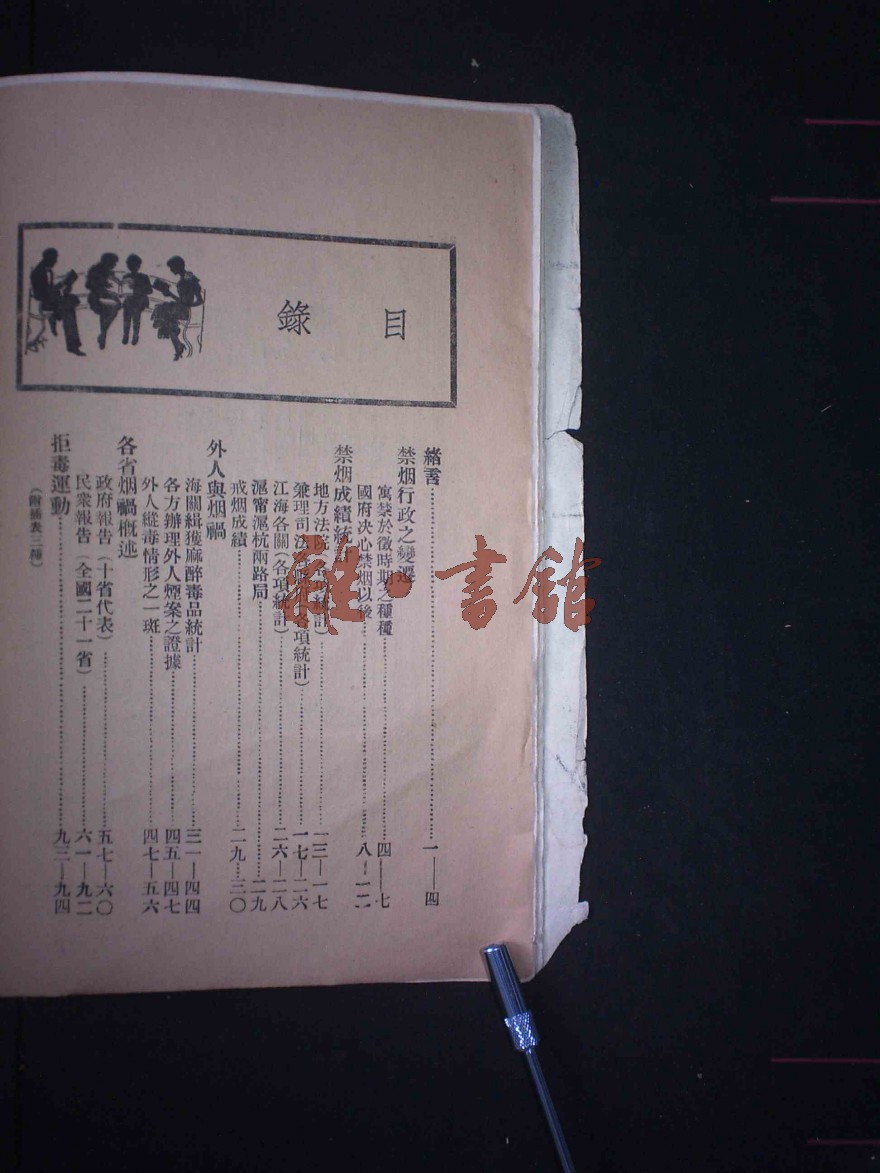 目錄
緒言……一—四
禁烟行政之變遷
寓禁於徵時期之種種……四—七
國府決心禁烟以後……八—一二
禁烟成績統計
地方法院(各項統計)……一三—一七
兼理司法縣政府(各項統計)……一七—二六
江海各關(各項統計)……二六—二八
滬甯滬杭兩路局……二九
戒烟成績……二九…三〇
外人與烟禍
海關緝獲麻醉毒品統計……三一—四四
各方辦理外人煙案之證據……四五—四七
外人縱毒情形之一斑……四七—五六
各省烟禍概述
政府報告(十省代表)……五七—六〇
民衆報告(全國二十一省)……六一—九二
拒毒運動……九三—九四
(附插表三種)
雜·書館